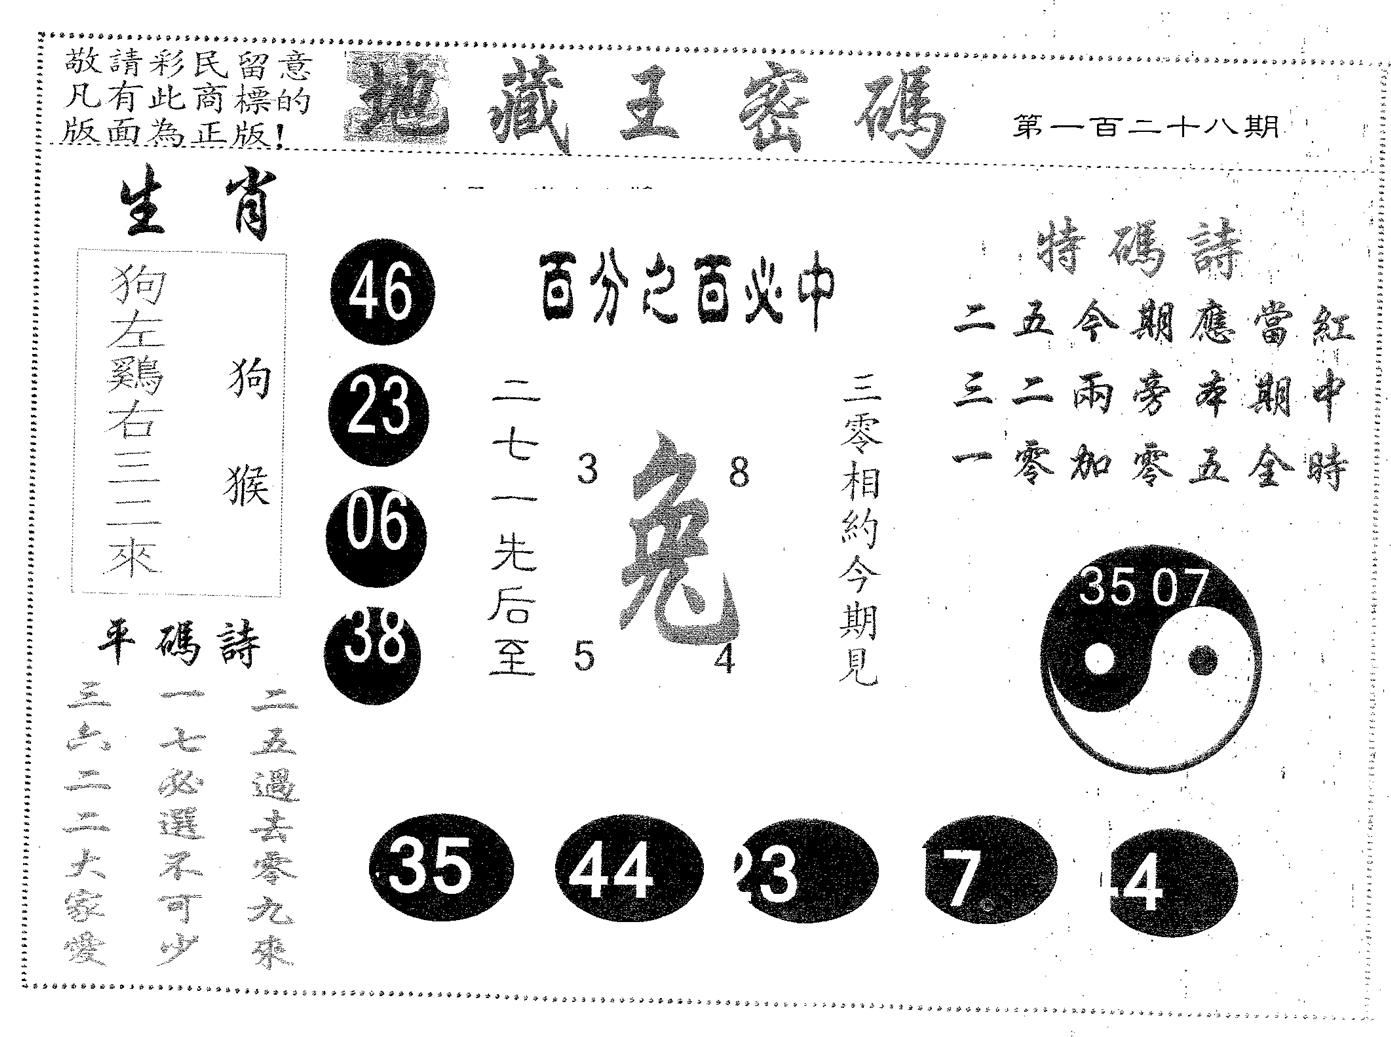 敬請彩民留意
凡有此商標的
版面為正版!
地藏王密碼
第一百二十八期
生肖
狗左鷄右三二來
狗猴
46
23
06
38
百分之百必中
二七一先后至
3
8
兔
5
4
三零相約今期見
特碼詩
二五今期應當紅
三二兩旁本期中
一零加零五全時
35 07
平碼詩
三六二二大家愛
一七必選不可少
二五過去零九來
35
44
23
7
4